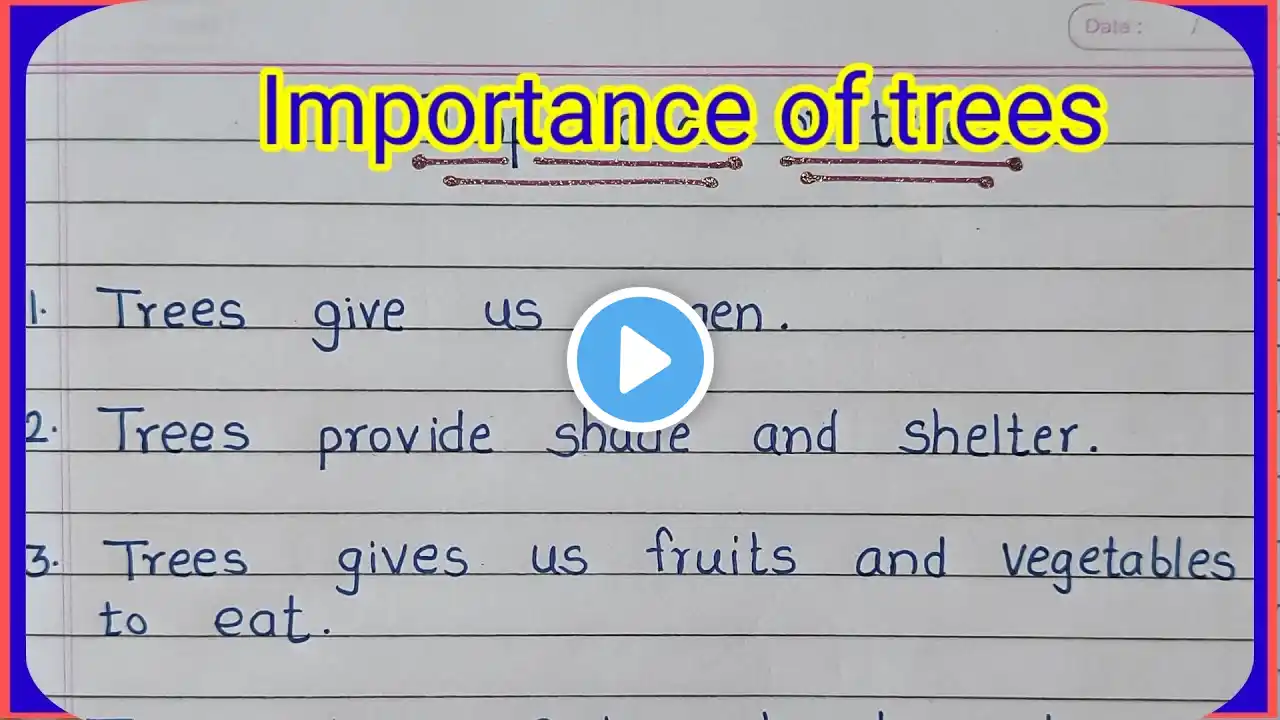 Date : /
Importance of trees
1. Trees give us
2. Trees provide shade and shelter.
3. Trees gives us fruits and vegetables
to eat.